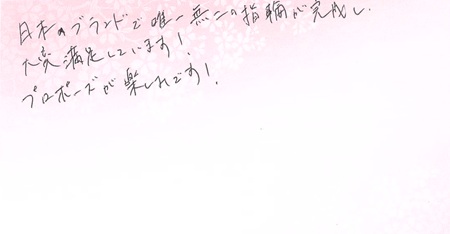 日本のブランドで唯一無二の指輪が完成し、
大変満足しています！
プロポーズが楽しみです！